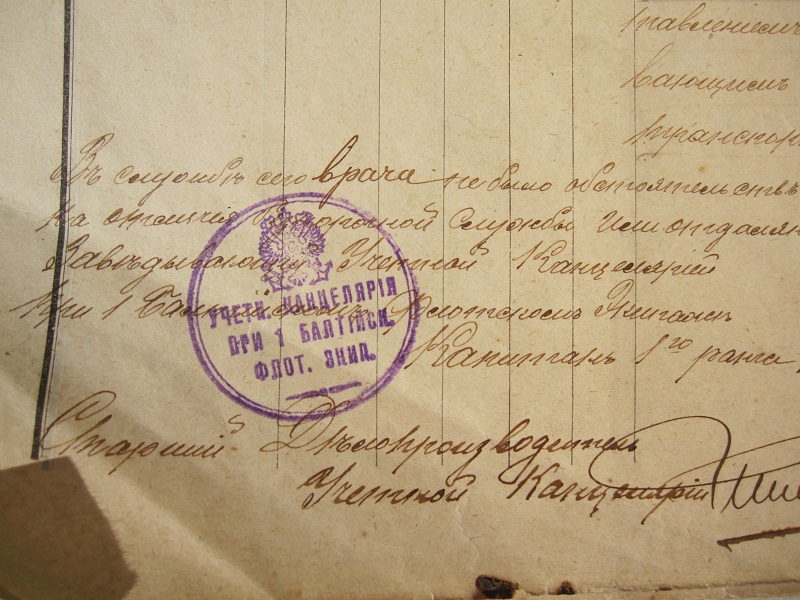 правлением
вающимъ
транспор
Въ службѣ сего врача не было обстоятельствъ
на отличiя безпорочной службы или отдаля
Завѣдывающiй Учетной Канцелярiей
При 1 Балтiйскомъ Флотскомъ Экипажѣ
Капитанъ 1го ранга
УЧЕТН. КАНЦЕЛЯРIЯ
ПРИ 1 БАЛТIЙСК.
ФЛОТ. ЭКИП.
Старшiй Дѣлопроизводитель
Учетной Канцелярiи